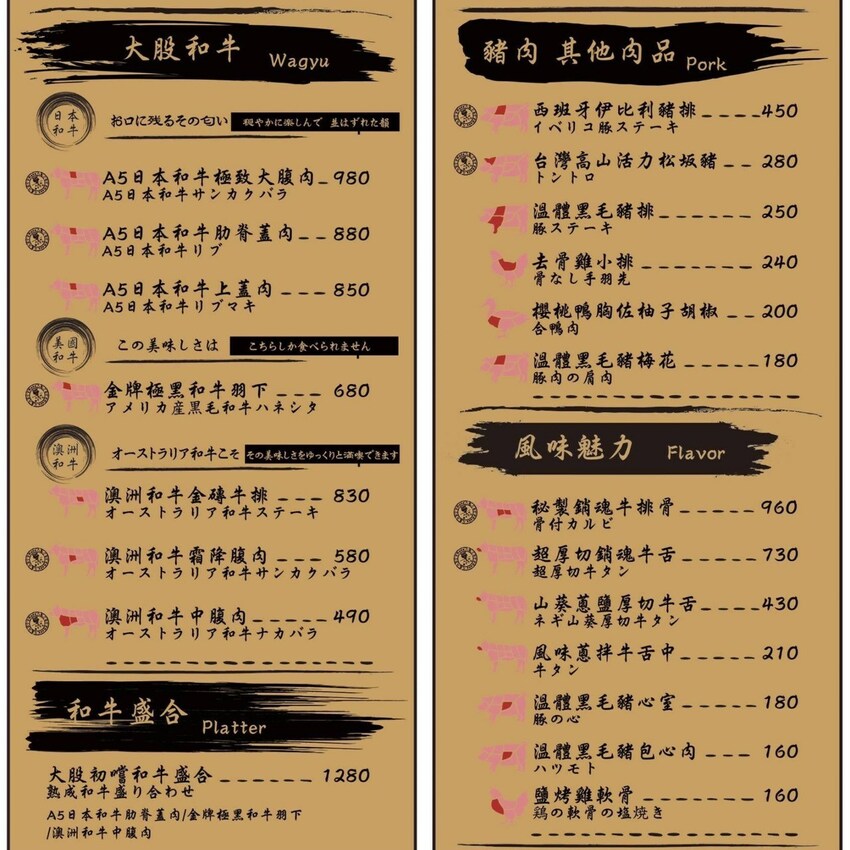 大股和牛 Wagyu
日本
和牛
お口に残るその匂い 穏やかに楽しんで 並はずれた韻
A5日本和牛極致大腹肉 980
A5日本和牛サンカクバラ
A5日本和牛肋脊蓋肉 880
A5日本和牛リブ
A5日本和牛上蓋肉 850
A5日本和牛リブマキ
美國
和牛
この美味しさは こちらしか食べられません
金牌極黑和牛羽下 680
アメリカ産黒毛和牛ハネシタ
澳洲
和牛
オーストラリア和牛こそ その美味しさをゆっくりと満喫できます
澳洲和牛金磚牛排 830
オーストラリア和牛ステーキ
澳洲和牛霜降腹肉 580
オーストラリア和牛サンカクバラ
澳洲和牛中腹肉 490
オーストラリア和牛ナカバラ
和牛盛合 Platter
大股初嚐和牛盛合 1280
熟成和牛盛り合わせ
A5日本和牛肋脊蓋肉/金牌極黑和牛羽下
/澳洲和牛中腹肉
豬肉 其他肉品 Pork
西班牙伊比利豬排 450
イベリコ豚ステーキ
台灣高山活力松坂豬 280
トントロ
溫體黑毛豬排 250
豚ステーキ
去骨雞小排 240
骨なし手羽先
櫻桃鴨胸佐柚子胡椒 200
合鴨肉
溫體黑毛豬梅花 180
豚肉の肩肉
風味魅力 Flavor
秘製銷魂牛排骨 960
骨付カルビ
超厚切銷魂牛舌 730
超厚切牛タン
山葵蔥鹽厚切牛舌 430
ネギ山葵厚切牛タン
風味蔥拌牛舌中 210
牛タン
溫體黑毛豬心室 180
豚の心
溫體黑毛豬包心肉 160
ハツモト
鹽烤雞軟骨 160
鶏の軟骨の塩焼き